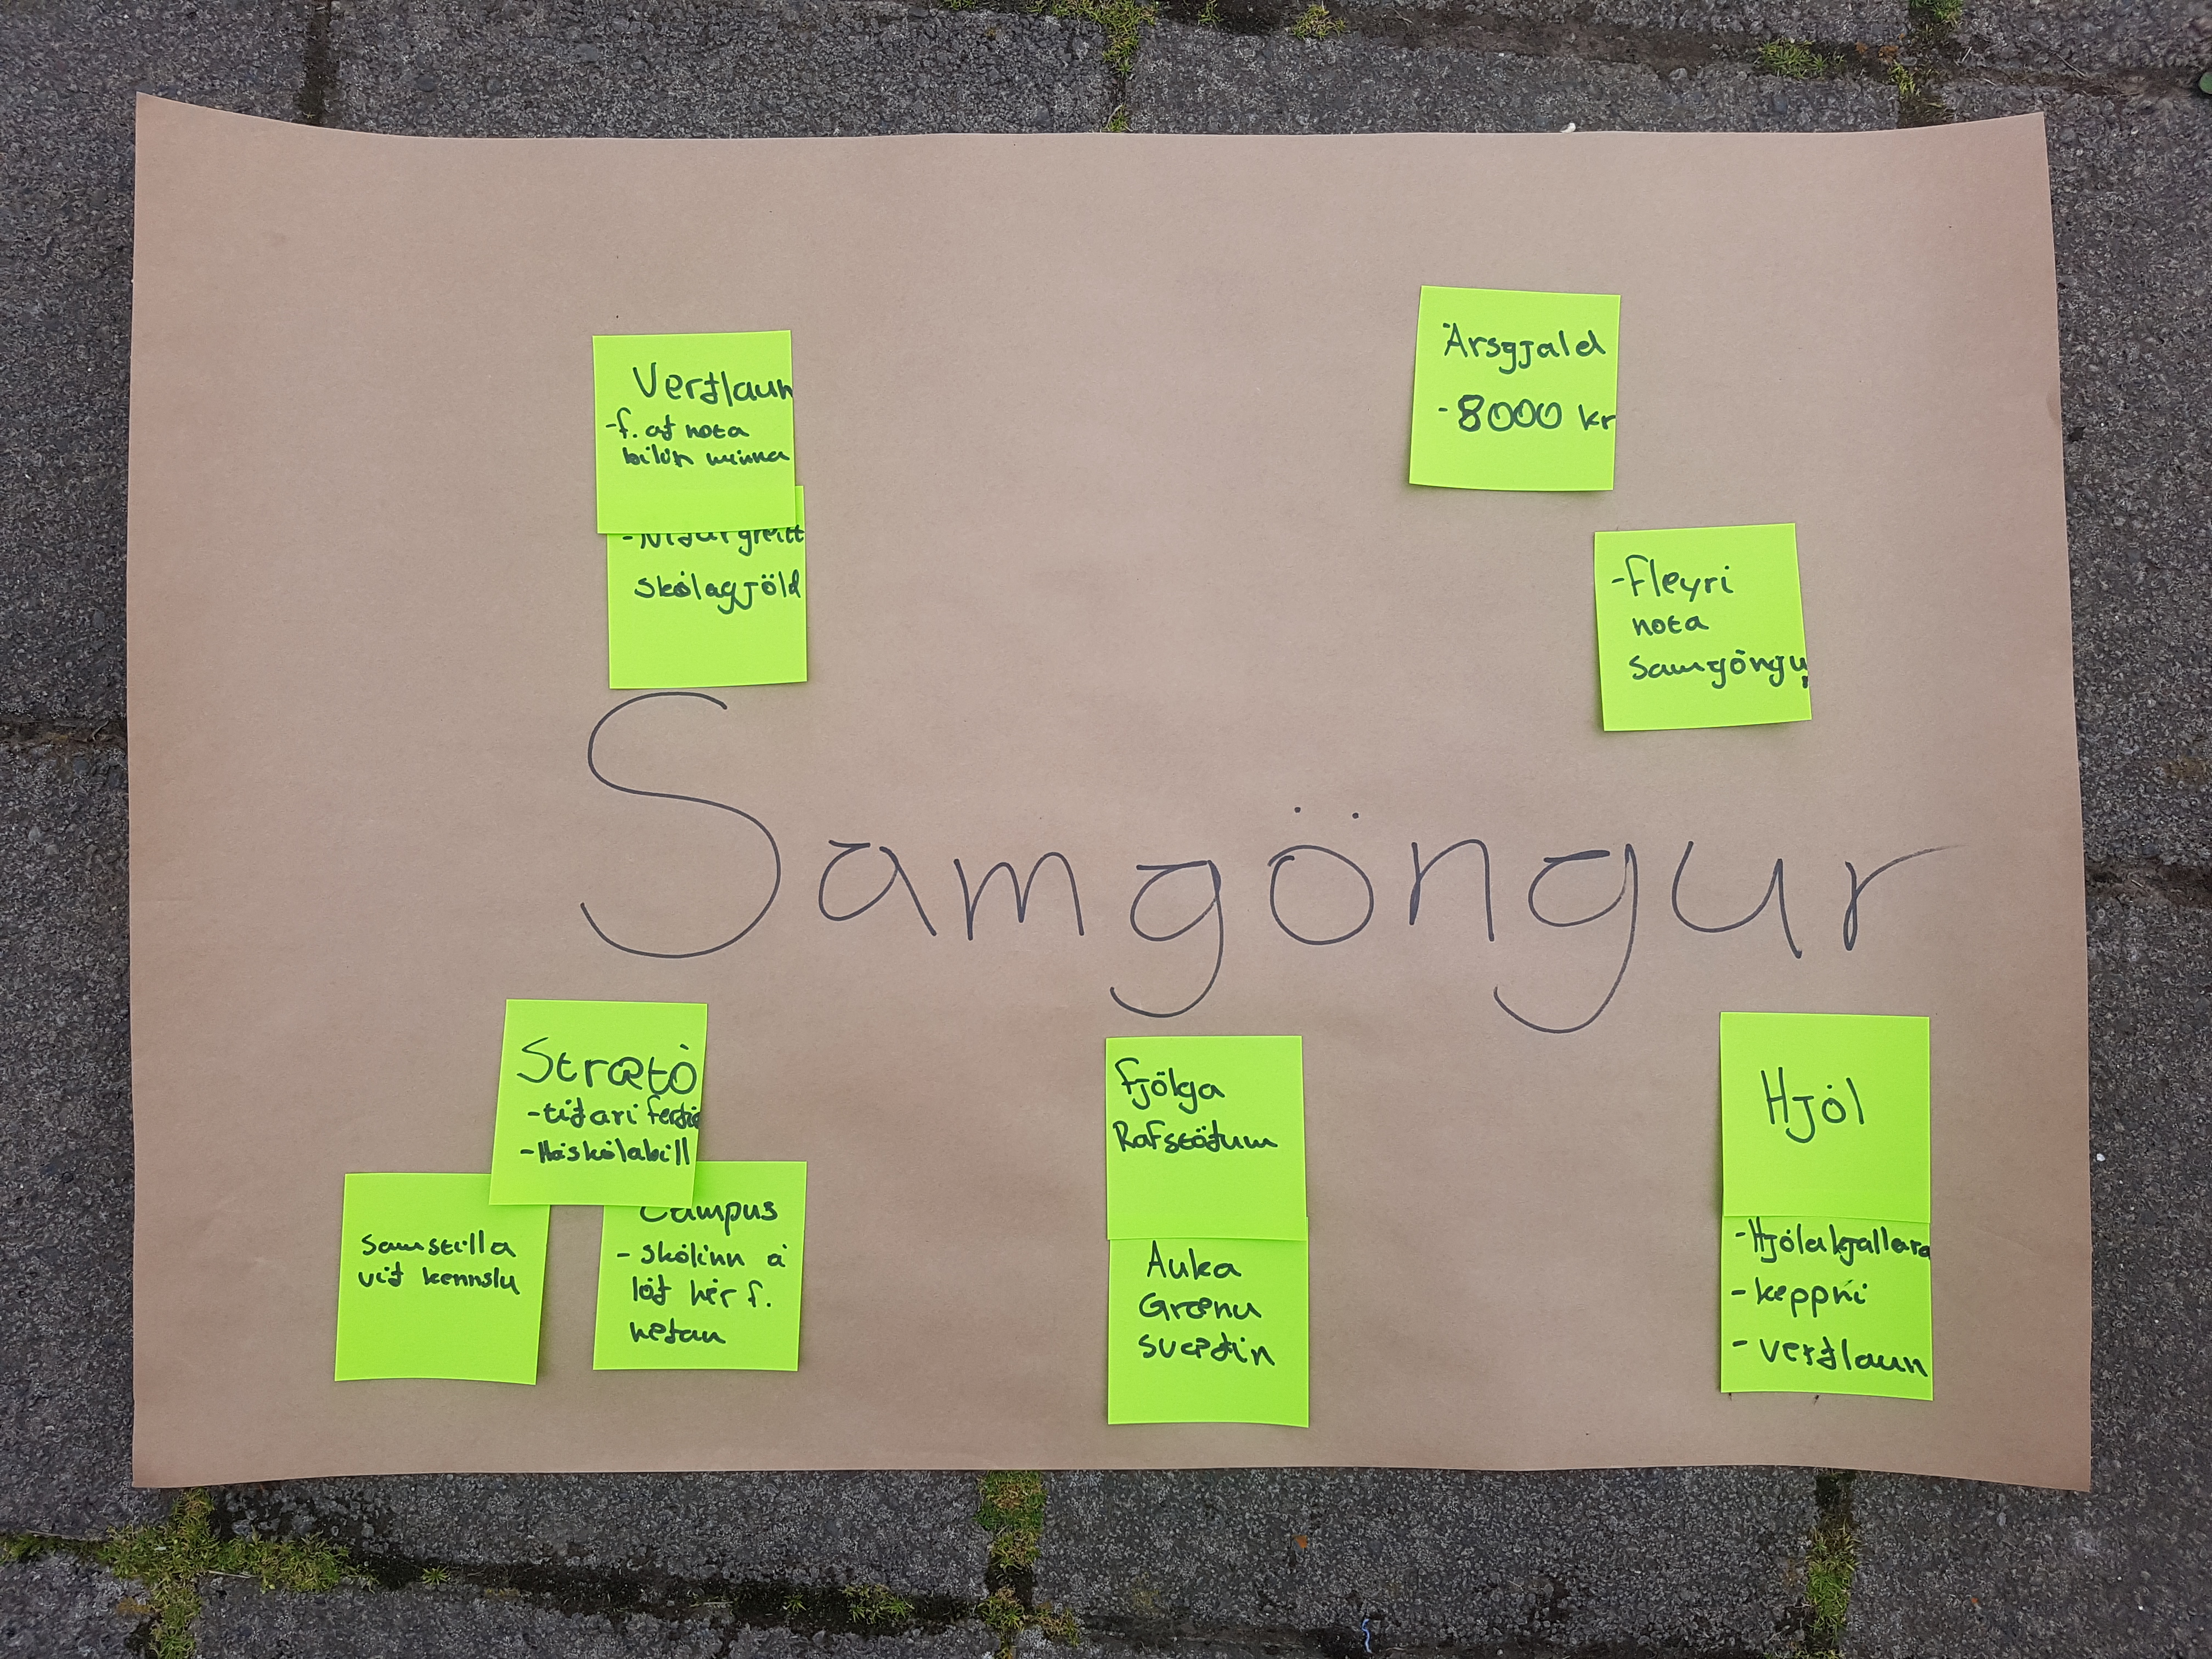 Verðlaun
- f. að nota
bílinn minna
- Niðurgreitt
skólagjöld
Ársgjald
- 8000 kr
- Fleyri
nota
samgöngur
Samgöngur
Strætó
- tiðari ferðir
- Háskólabíll
samstilla
við kennslu
Campus
- skólinn á
lóð hér f.
neðan
Fjölga
Rafstöðum
Auka
Grænu
svæðin
Hjól
- Hjólakjallara
- keppni
- verðlaun